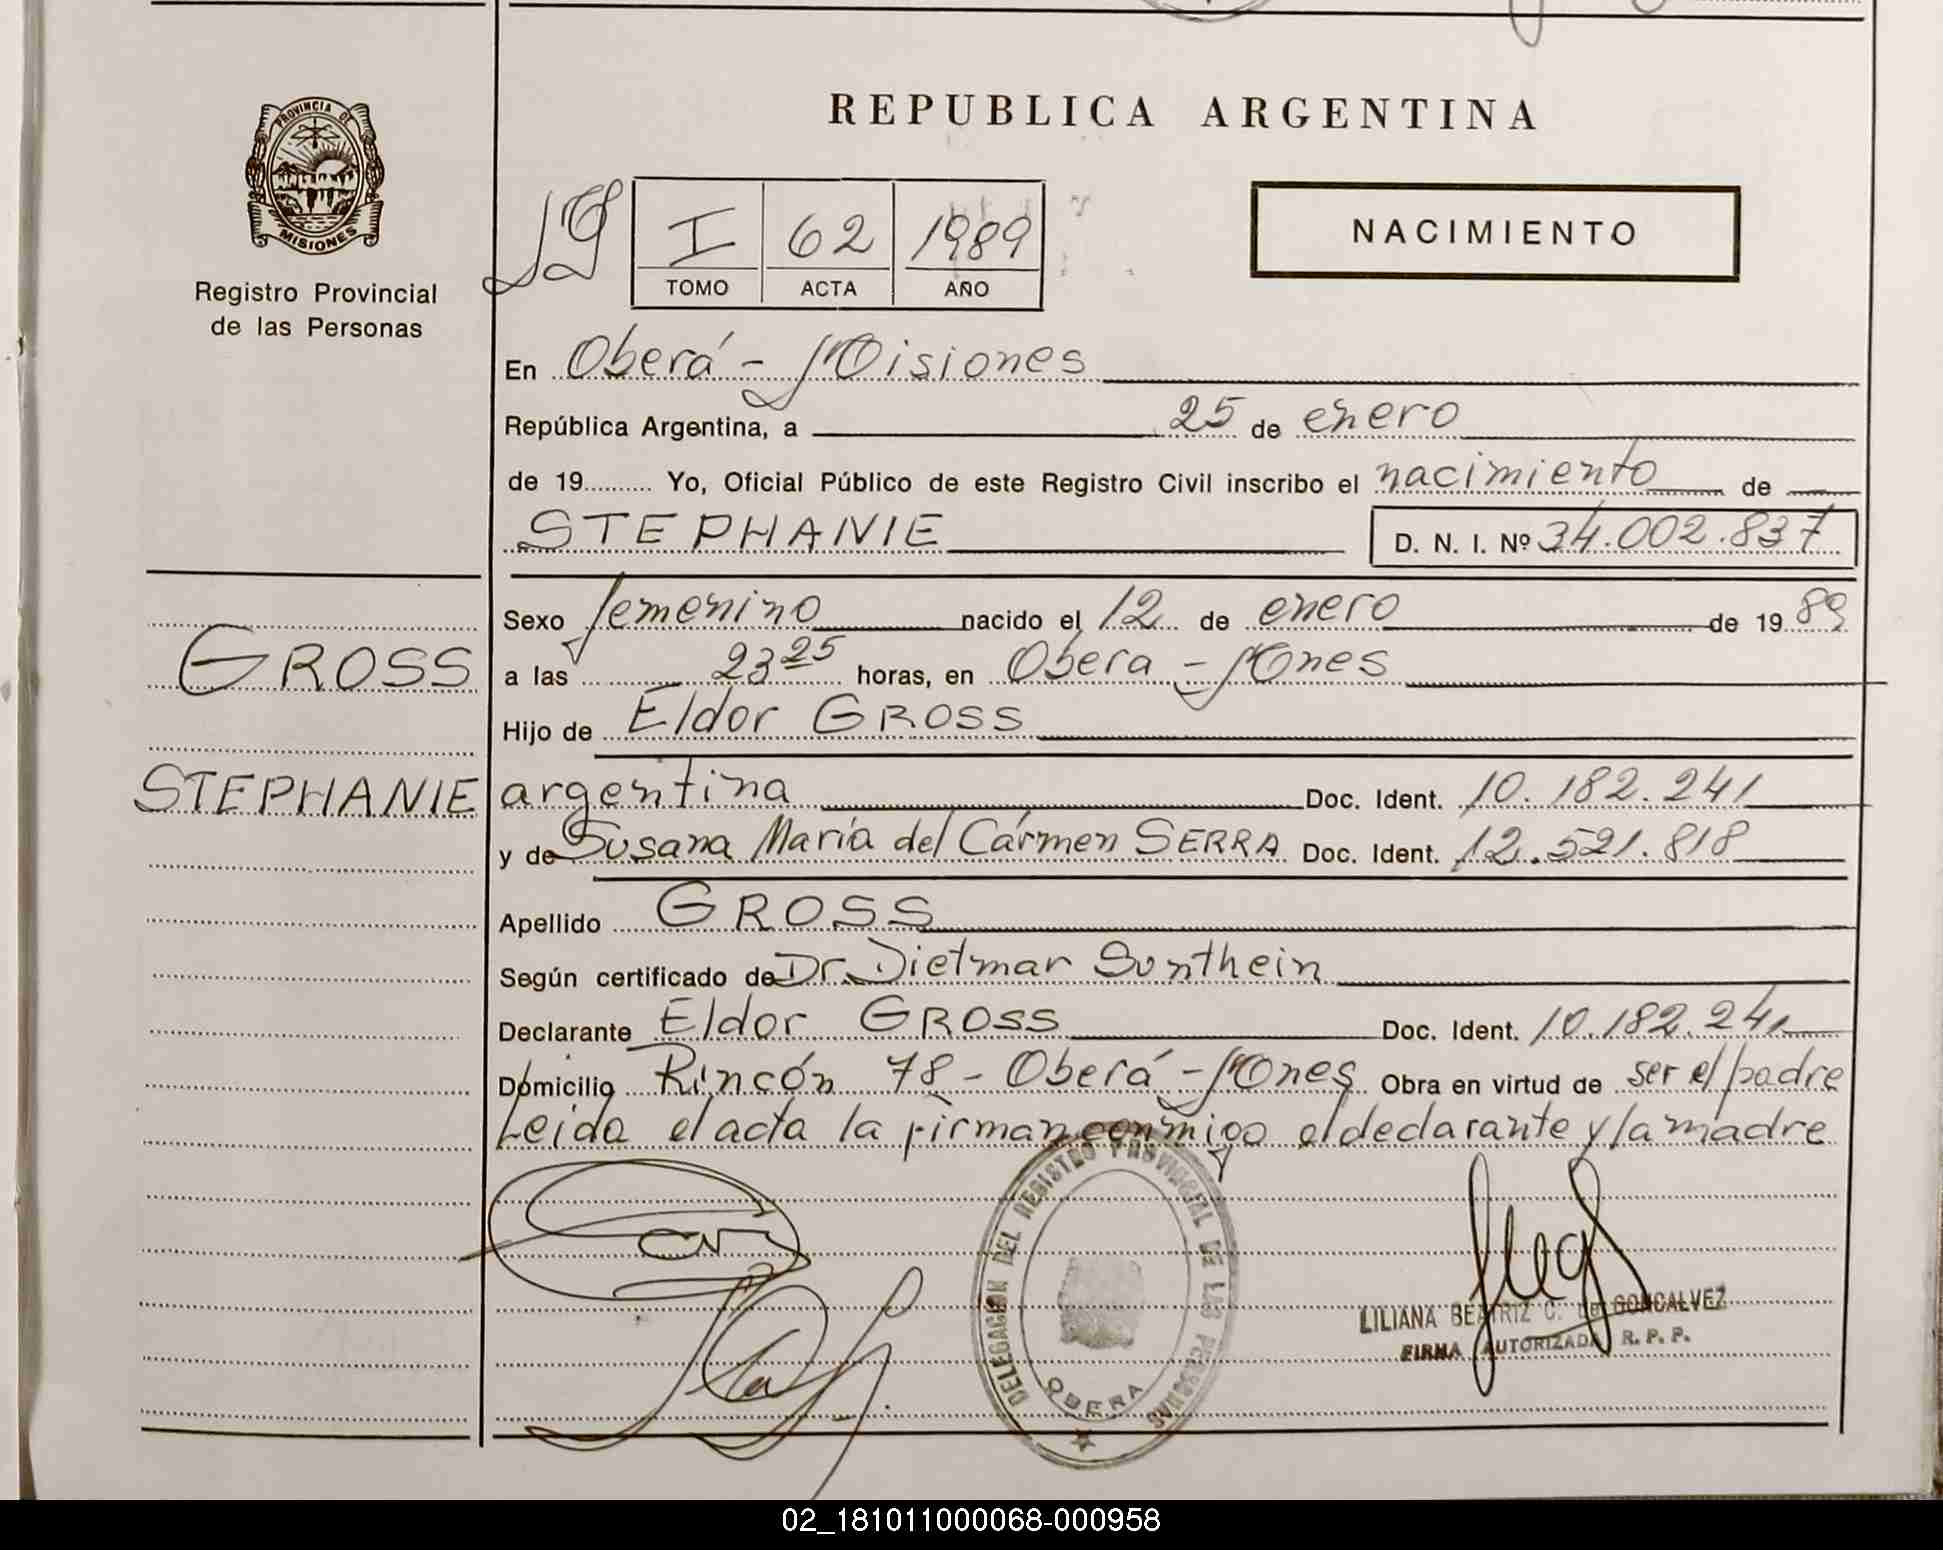 REPUBLICA ARGENTINA
PROVINCIA DE MISIONES
Registro Provincial
de las Personas
I 62 1989
TOMO ACTA AÑO
NACIMIENTO
En Oberá - Misiones
República Argentina, a 25 de enero
de 19 Yo, Oficial Público de este Registro Civil inscribo el nacimiento de
STEPHANIE D. N. I. Nº 34.002.837
Sexo femenino nacido el 12 de enero de 19 89
GROSS
a las 23 25 horas, en Obera - Mnes
Hijo de Eldor GROSS
STEPHANIE
argentina Doc. Ident. 10.182.241
y de Susana María del Cármen SERRA Doc. Ident. 12.521.818
Apellido GROSS
Según certificado de Dr. Dietmar Sonthein
Declarante Eldor GROSS Doc. Ident. 10.182.241
Domicilio Rincón 78 - Oberá - Mnes Obra en virtud de ser el padre
Leida el acta la firman conmigo el declarante y la madre
DELEGACION DEL REGISTRO PROVINCIAL DE LAS PERSONAS
OBERA
LILIANA BEATRIZ C. DE GONCALVEZ
FIRMA AUTORIZADA R. P. P.
02_181011000068-000958